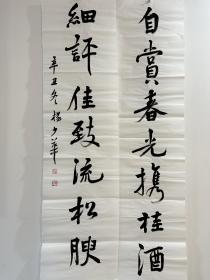 自賞春光携桂酒
細評佳致流松腴
辛丑冬楊少華